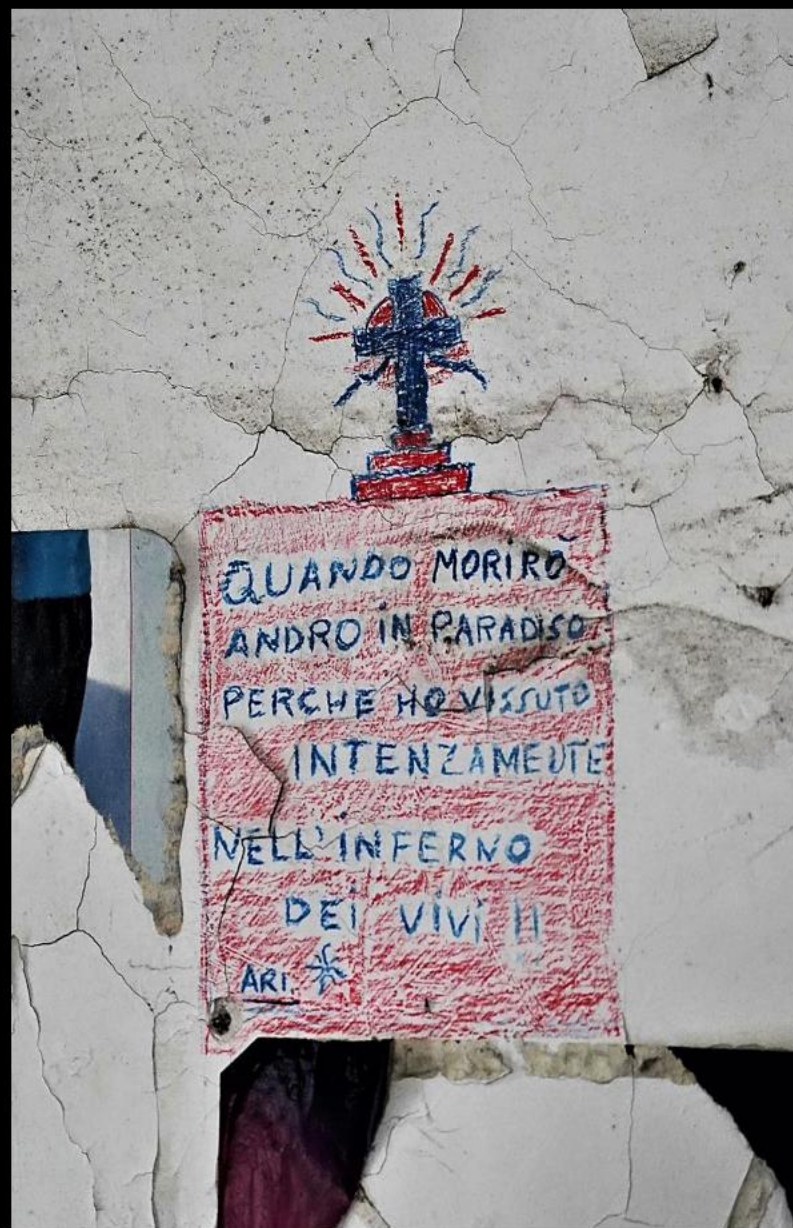 QUANDO MORIRÒ
ANDRO IN PARADISO
PERCHE HO VISSUTO
INTENZAMENTE
NELL'INFERNO
DEI VIVI !!
ARI.